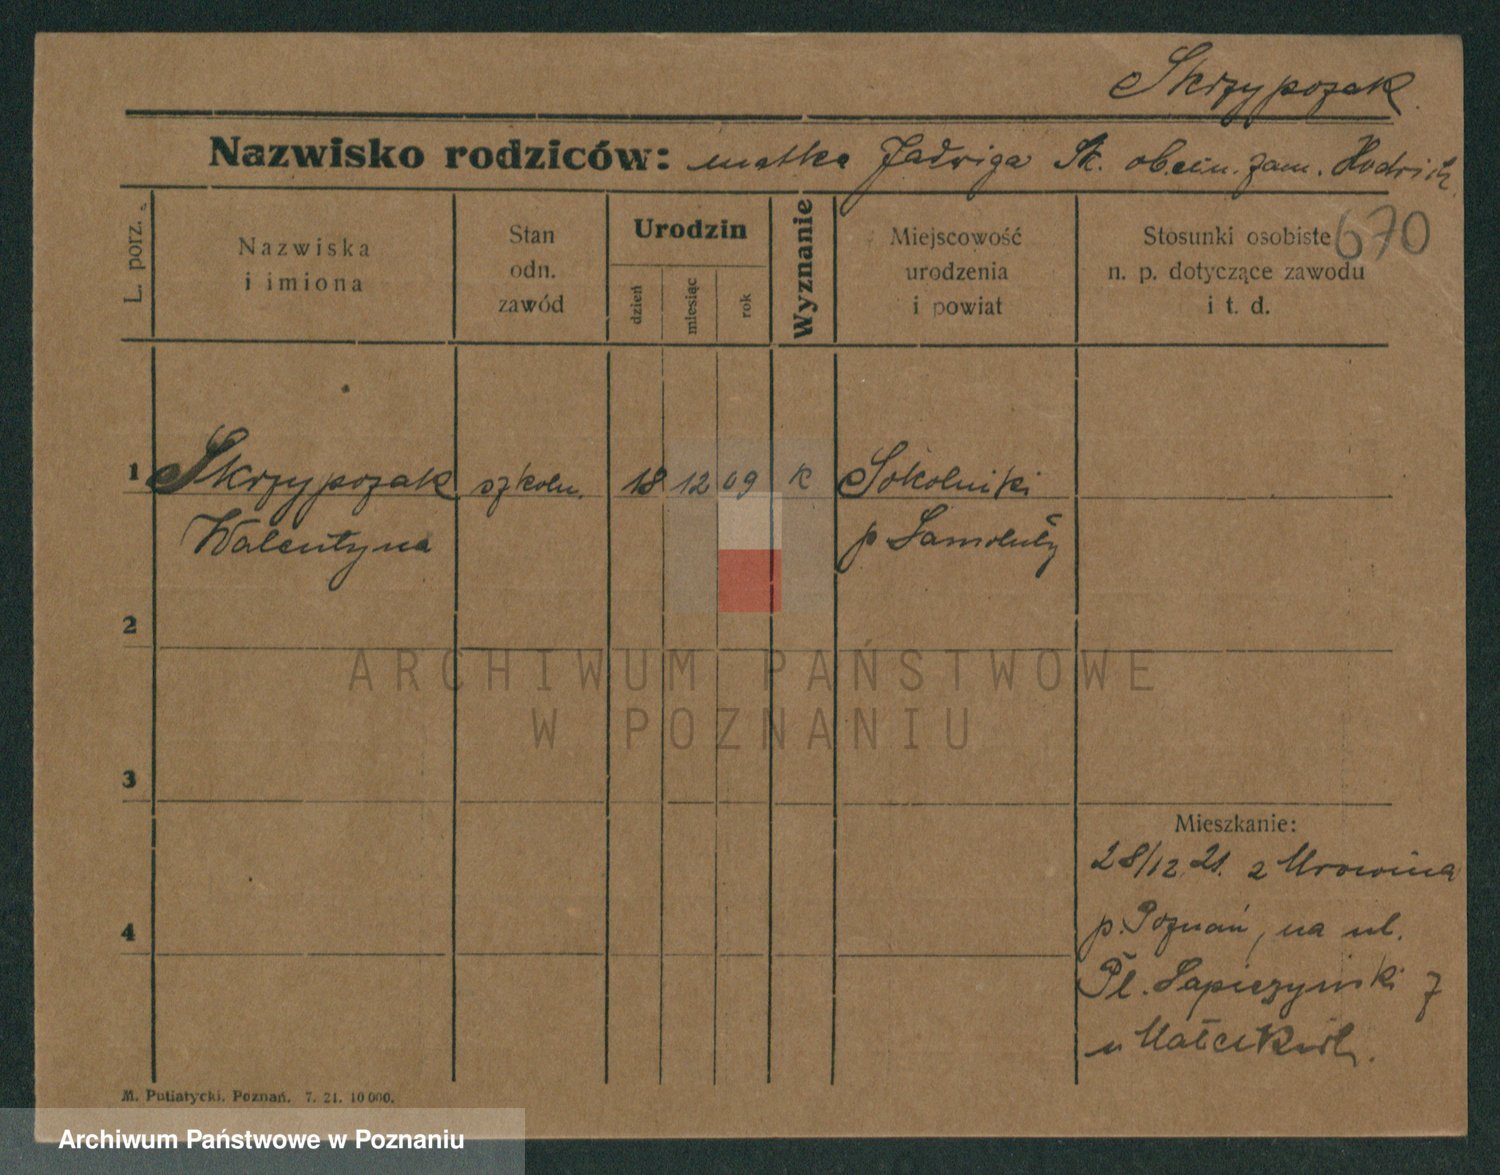 Skrzypczak
Nazwisko rodziców: matka Jadwiga Sk. obecn. zam.
670
L. porz.
Nazwiska
i imiona
Stan
odn.
zawód
Urodzin
dzień
miesiąc
rok
Wyznanie
Miejscowość
urodzenia
i powiat
Stosunki osobiste
n. p. dotyczące zawodu
i t. d.
1 Skrzypczak szkoln. 18 12 09 k Sokolniki
Walentyna p Szamotuły
2
3
4
Mieszkanie:
28/12.21. z Mrowina
p. Poznań, na ul.
Pl. Sapieżyński 7
u
M. Putiatycki. Poznań. 7. 21. 10 000.
ARCHIWUM PAŃSTWOWE
W POZNANIU
Archiwum Państwowe w Poznaniu